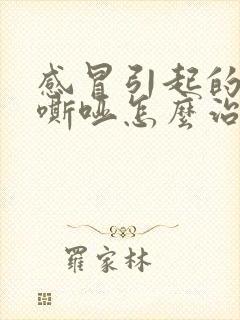 感冒引起的
嘶啞怎麼治
羅家林